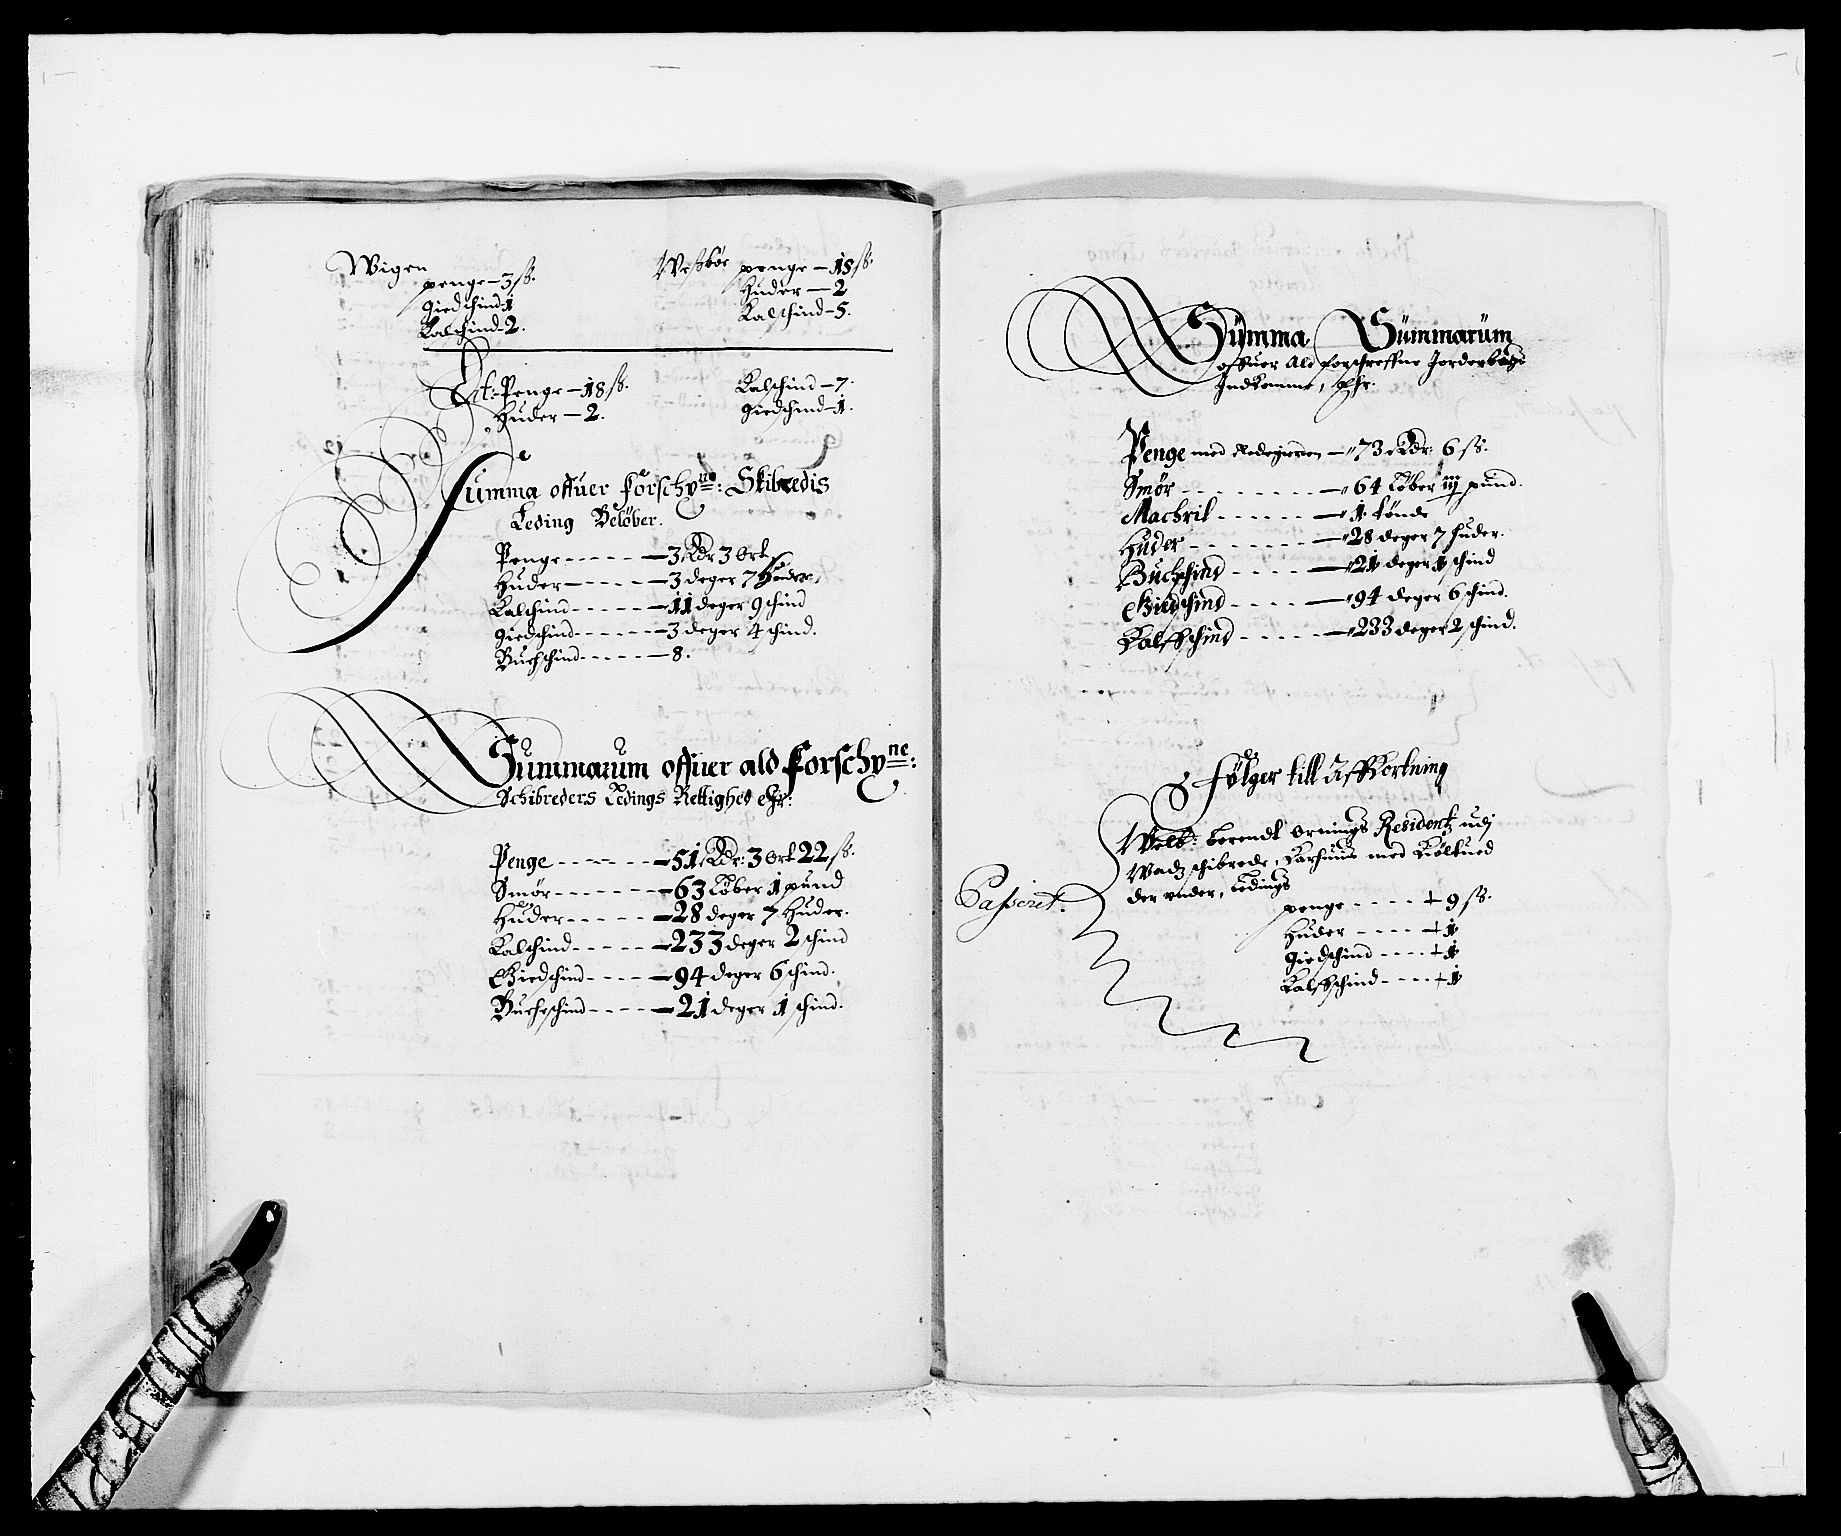 Wigen
penge – 3 ß.
Giedschind 1
Kalschind – 2.
Weszbøe penge – 15 ß.
Huder – 2
Kalschind – 5.
Lt: Penge – 18 ß.
Huder – 2.
Kalschind – 7.
Giedschind – 1.
Summa offuer forschⁿᵉ: Skibredis
Leding Beløber.
Penge - - - - - 3 Rdr 3 Ort
Huder - - - - - 3 deger 7 Huder.
Kalschind - - - - - 11 deger 9 schind
Giedschind - - - - - 3 deger 4 schind.
Buchschind - - - - - 8.
Summarum offuer ald forschⁿᵉ:
Schibreders Ledings Rettighed ehr:
Penge - - - - - 51 Rdr: 3 Ort 22 ß.
Smør - - - - - 63 Løber 1 pund
Huder - - - - - 28 deger 7 Huder.
Kalschind - - - - - 233 deger 2 schind
Giedschind - - - - 94 deger 6 schind.
Bucheschind - - - - 21 deger 1 schind.
Summa Summarum
offuer Ald forschreffne Jorderbogs
Indkomme, Ehr.
Penge med - 73 Rdr: 6 ß.
Smør - - - - - 64 Løber iij pund.
Machril - - - - - 1 tønde
Huder - - - - - 28 deger 7 huder.
Buchschind - - - - 21 deger 1 schind
Giedschind - - - - 94 deger 6 schind.
Kalffschind - - - - 233 deger 2 schind.
Følger till Affkortning
Welb: Berendt Ornings Residentz udj
Wadz schibrede, Farhuus med Kiøltued
der under, Ledings
Passeret.
penge - - - - 9 ß.
Huder - - - - 1
Giedschind - - - - 1
Kalffschind - - - - 1